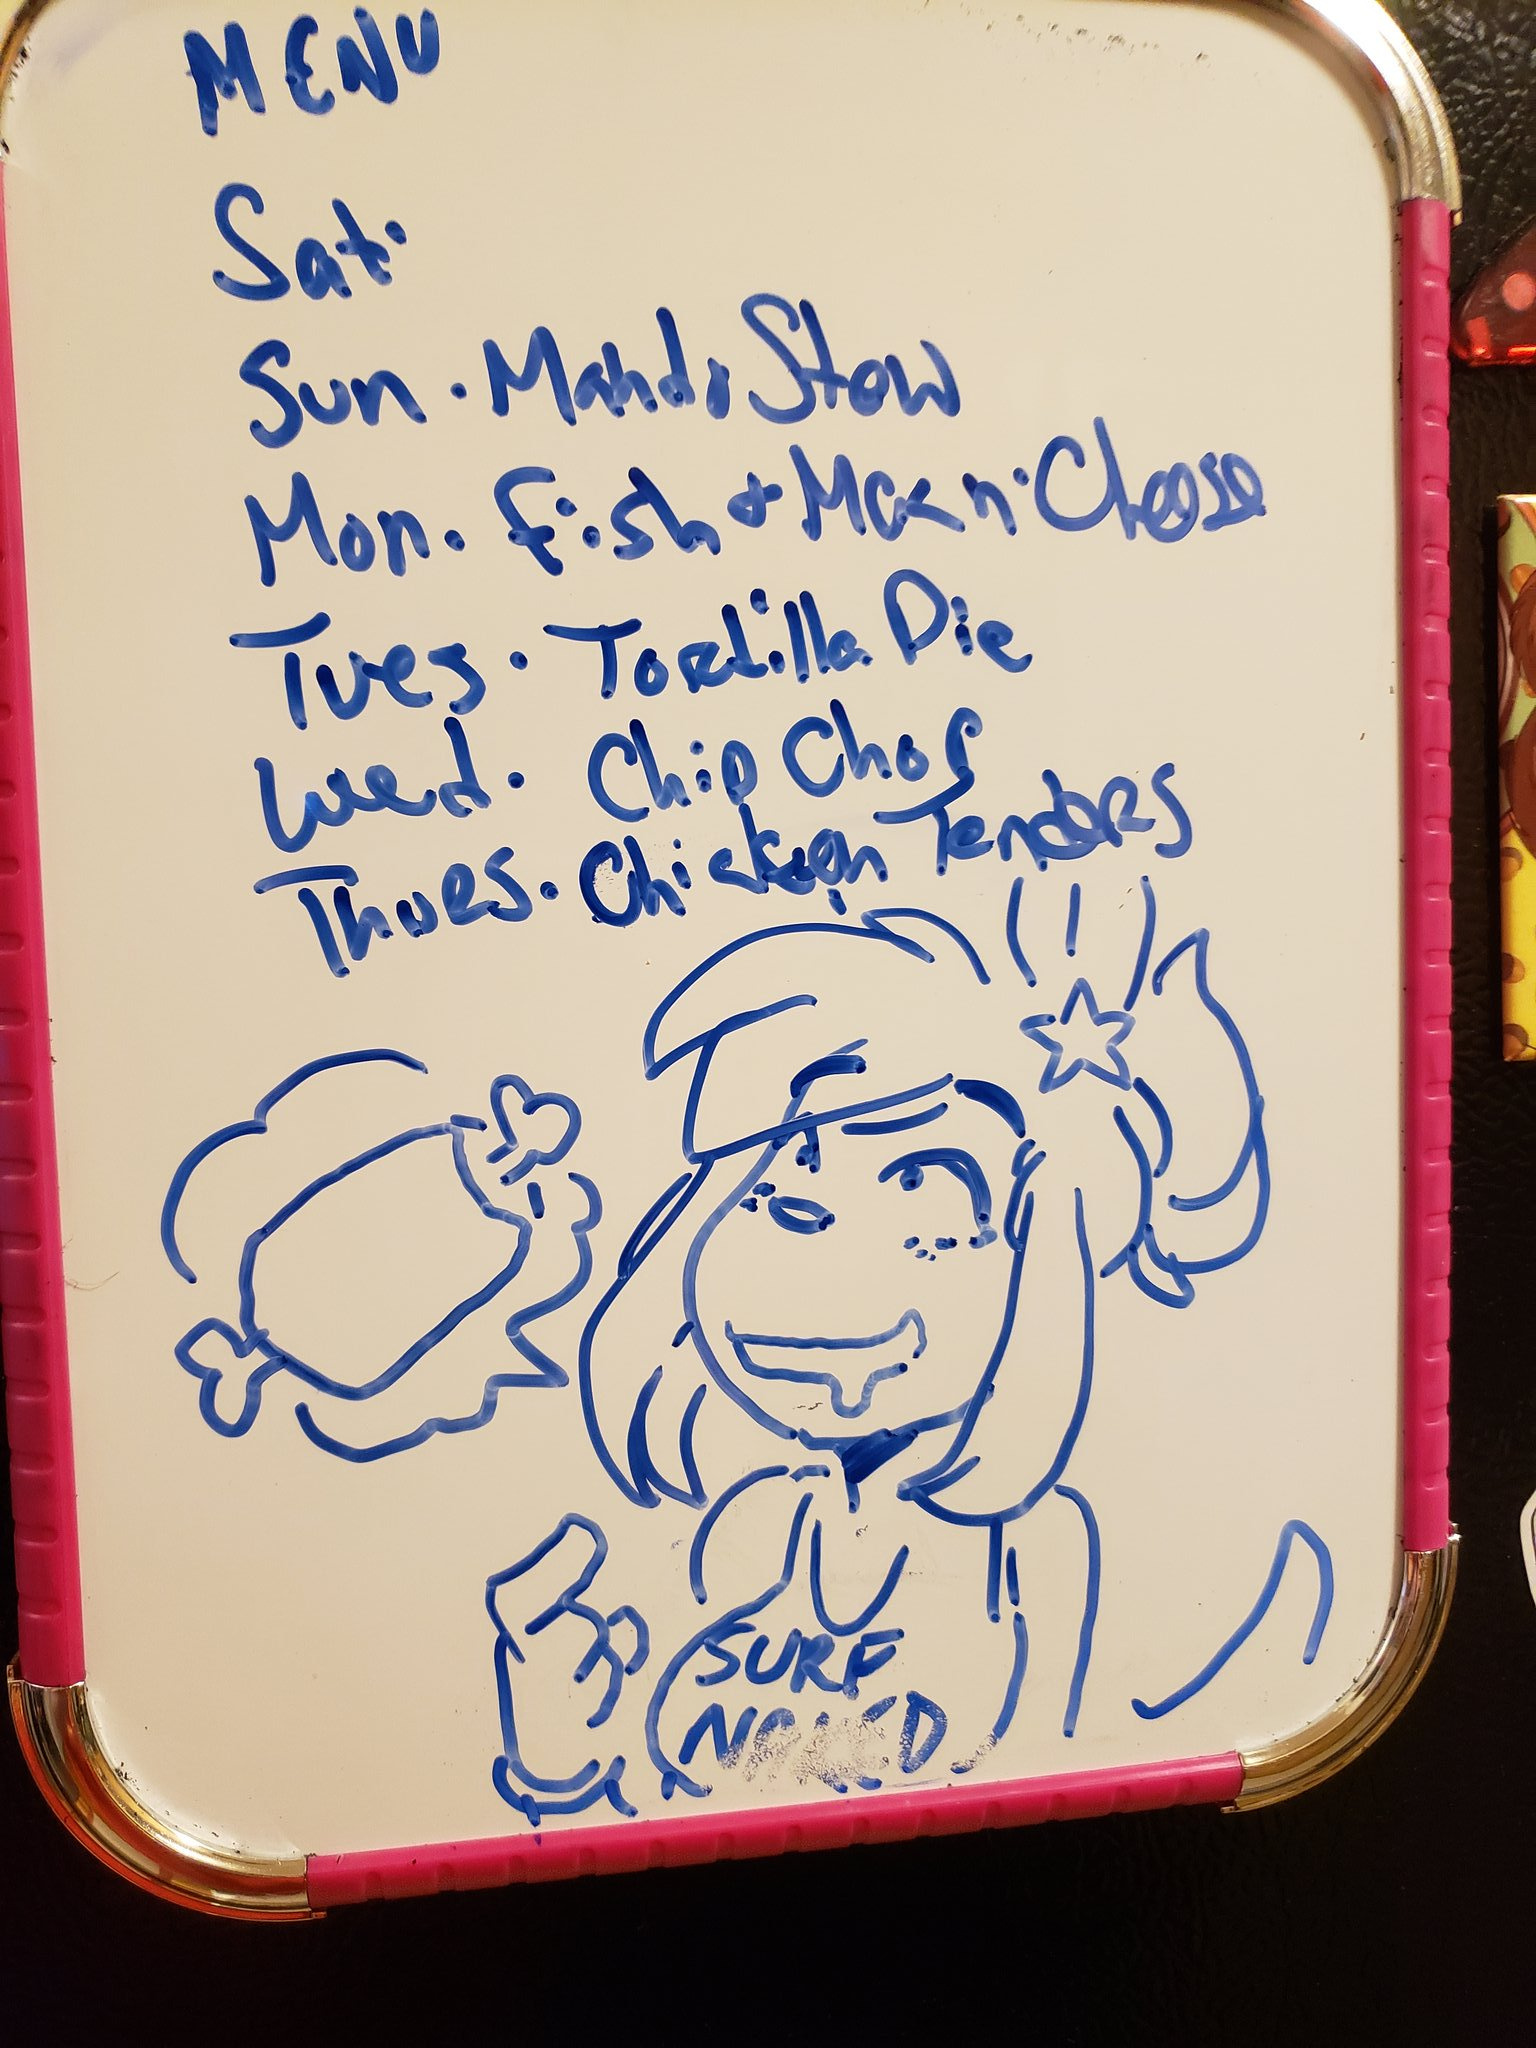 MENU
Sat.
Sun. Mahdi Stew
Mon. Fish & Mac n. Cheese
Tues. Tortilla Pie
Wed. Chip Chop
Thurs. Chicken Tenders
SURF
NAKED